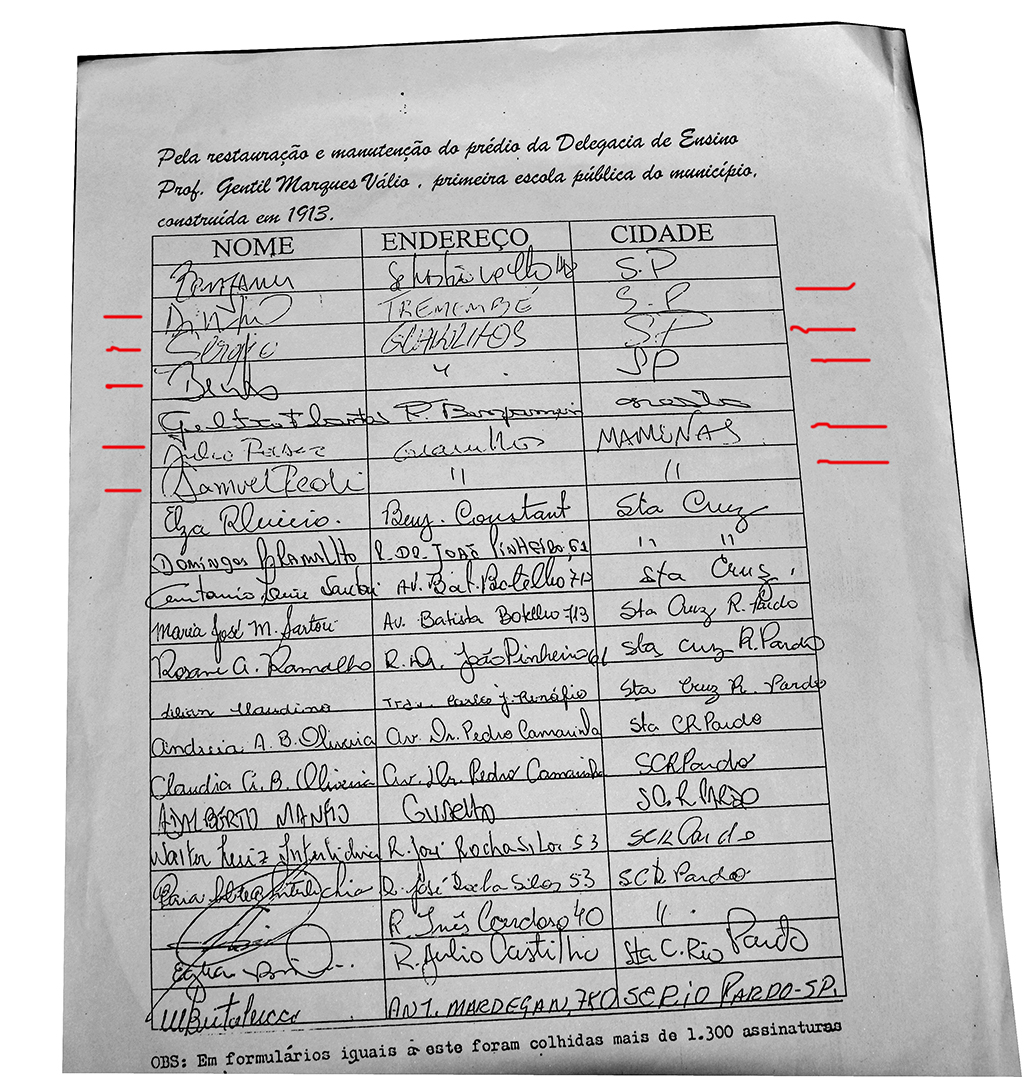 Pela restauração e manutenção do prédio da Delegacia de Ensino
Prof. Gentil Marques Válio , primeira escola pública do município,
construída em 1913.
NOME ENDEREÇO CIDADE
S.P
Dinho TREMEMBÉ S.P
Sérgio GUARULHOS S.P
Bento " SP
R.
Julio Rasec Guarulhos MAMONAS
Samuel Reoli " "
Elza Benj. Constant Sta Cruz
Domingos RAMALHO R. DR. JOÃO PINHEIRO, 61 " "
Av. Bat. Botelho 713 Sta Cruz
Maria José M. Sartori Av. Batista Botelho 713 Sta Cruz R. Pardo
Rosani A. Ramalho R. Dr. João Pinheiro 61 Sta Cruz R. Pardo
Sta Cruz R. Pardo
Andreia A. B. Oliveira Av. Dr. Pedro Camarinha Sta CR Pardo
Claudia A. B. Oliveira Av. Dr. Pedro Camarinha SCR Pardo
SC.R PARDO
Walter Luiz R. José Rocha 53 SCR Pardo
R. José 53 SCR. Pardo
R. Inês Cardoso 40 "
R. Julio Castilho Sta C. Rio Pardo
ANT. MARDEGAN, 780 SC RIO PARDO-SP.
OBS: Em formulários iguais à este foram colhidas mais de 1.300 assinaturas